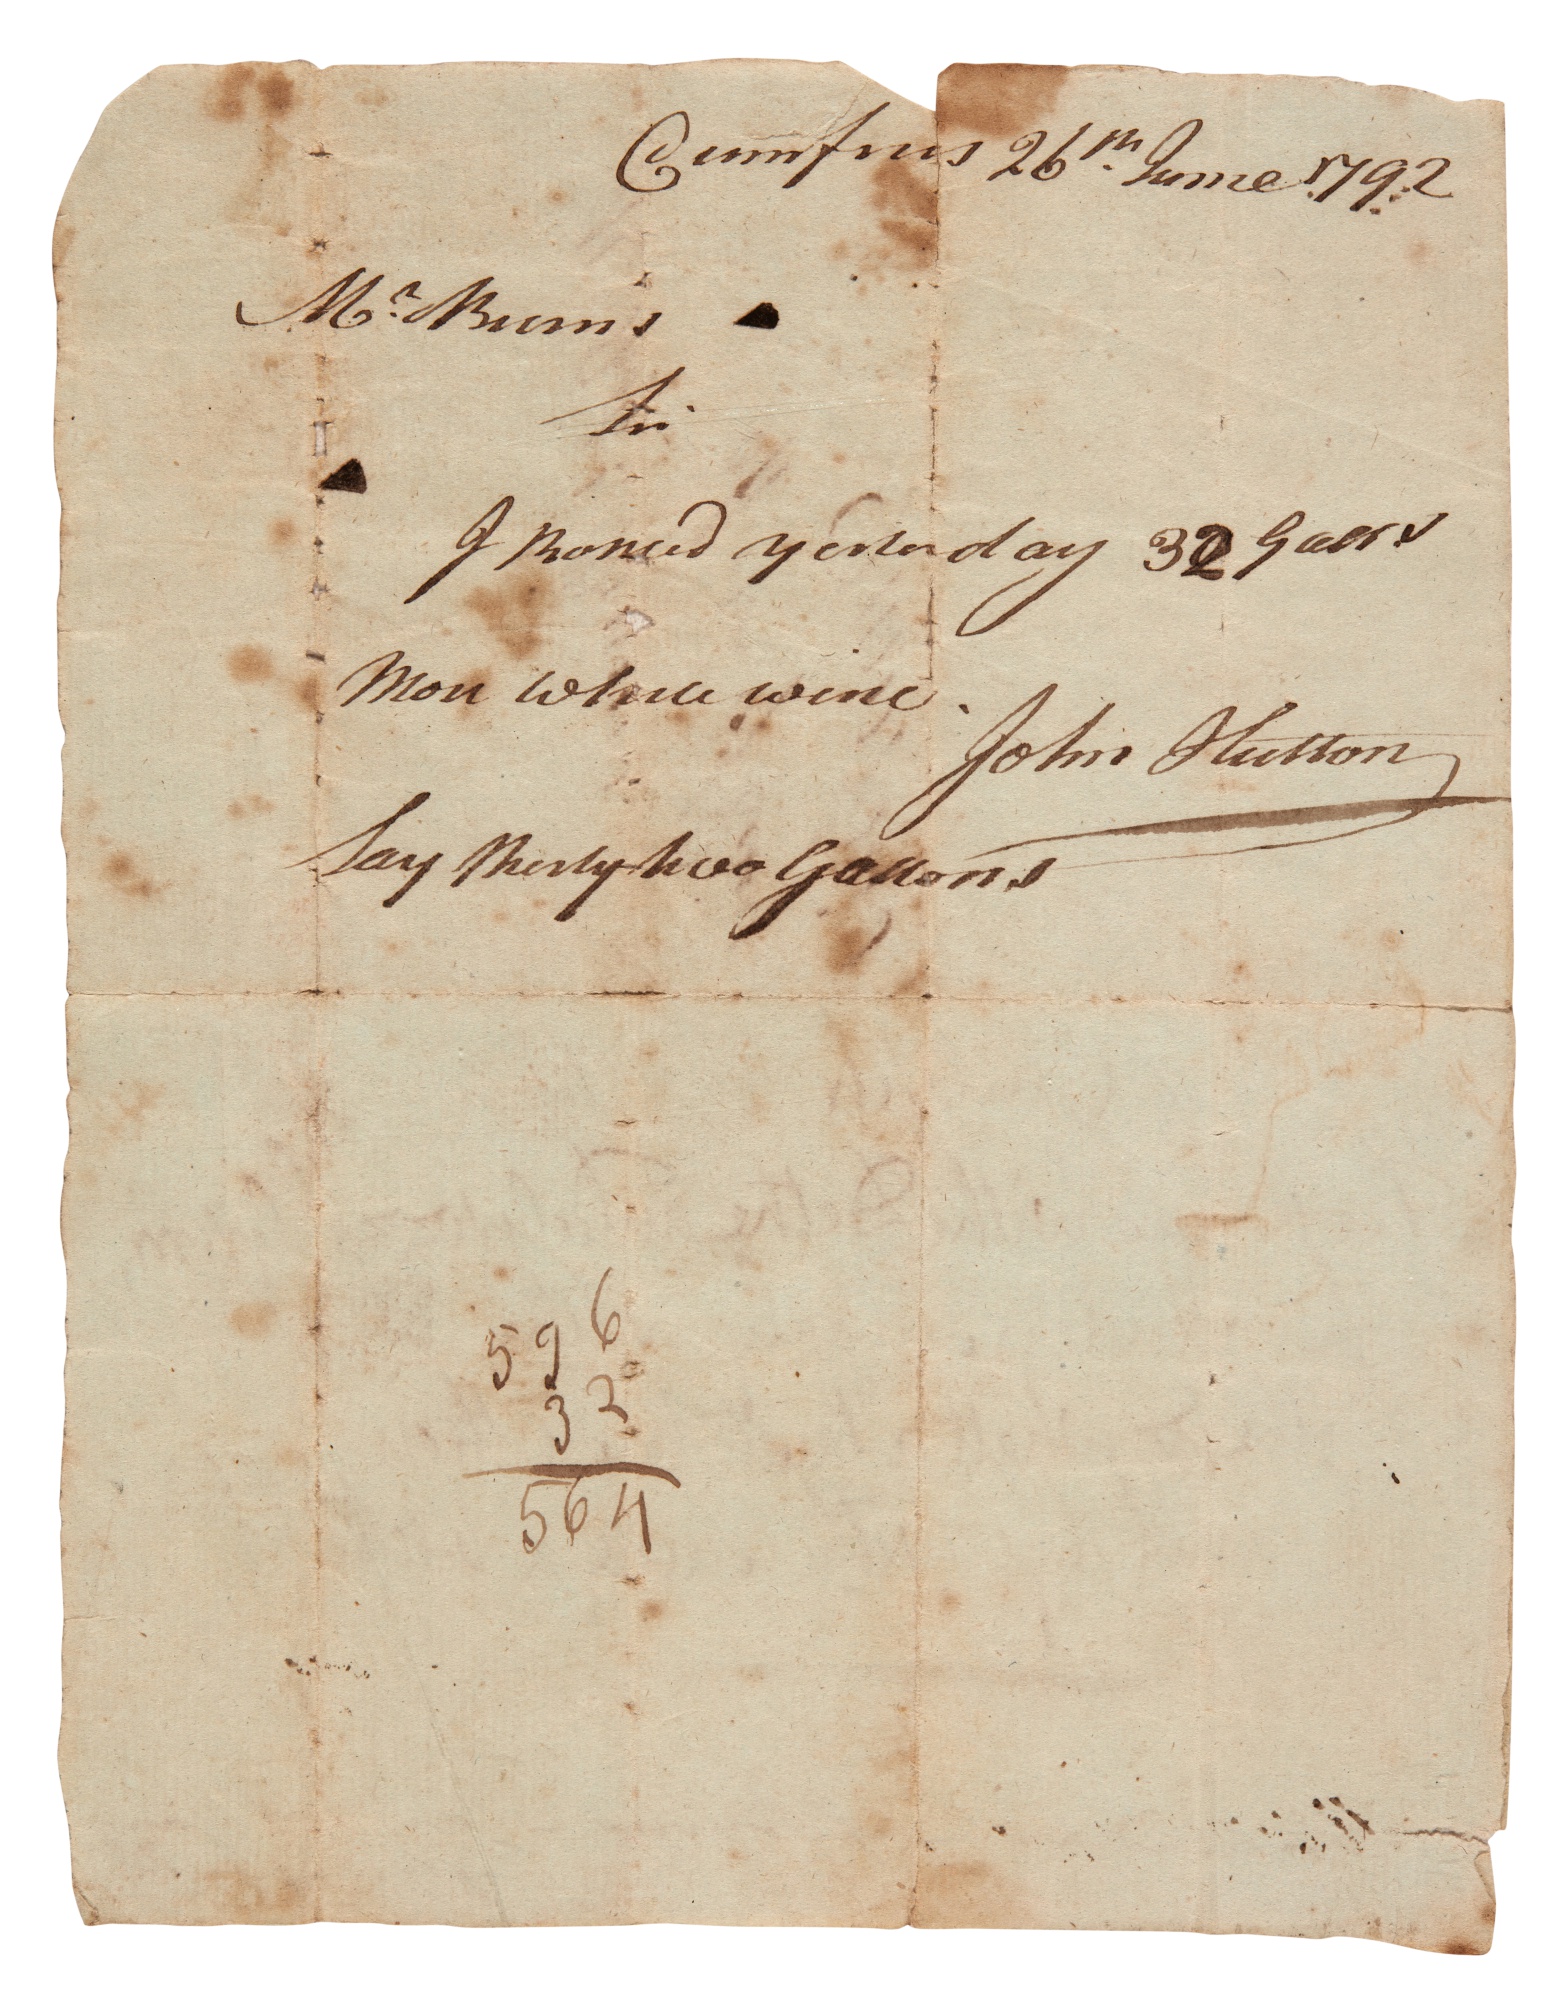 Dumfries 26th June 1792
Mr. Burns
Sir
I Racked yesterday 32 Galls
More White wine.
John Hutton
Say Therty two Gallons
596
32
564